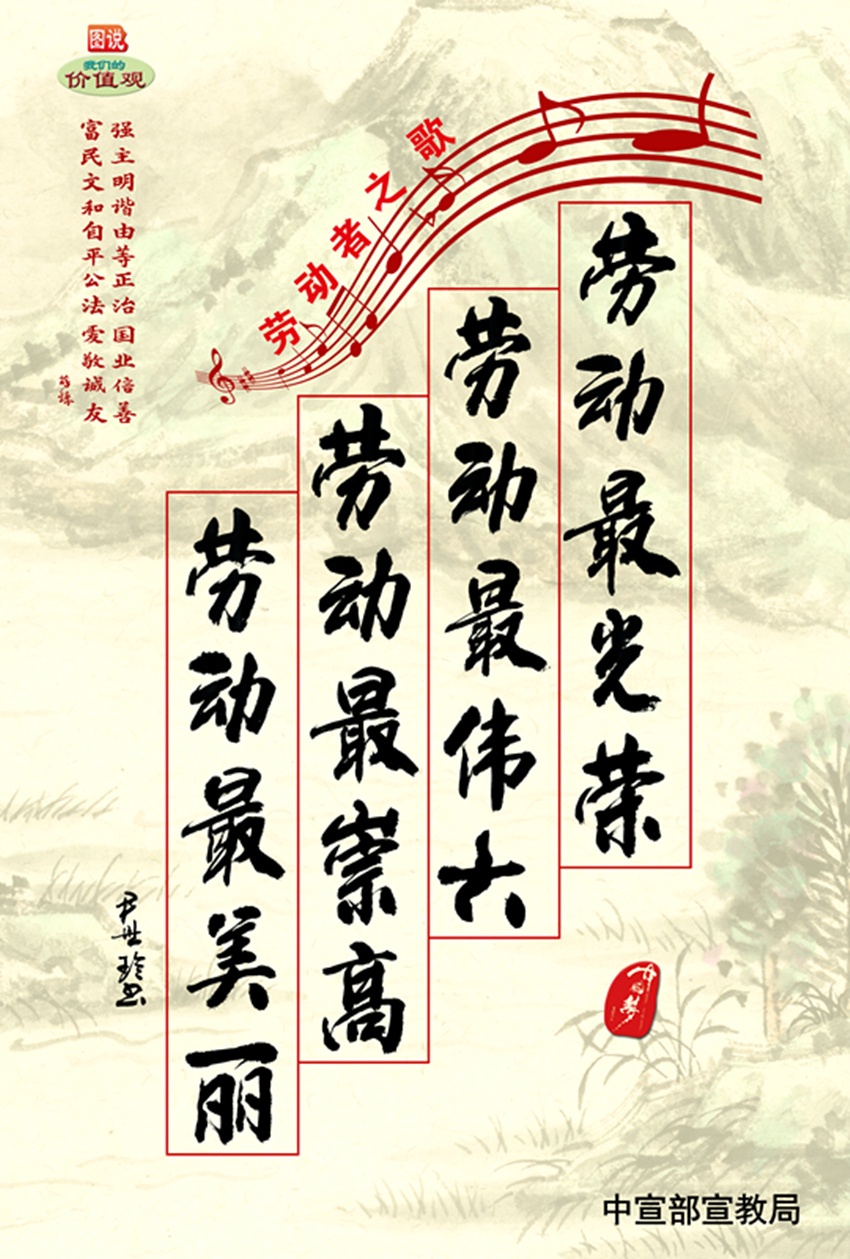 图说
我们的
价值观
富强
民主
文明
和谐
自由
平等
公正
法治
爱国
敬业
诚信
友善
劳动者之歌
劳动最光荣
劳动最伟大
劳动最崇高
劳动最美丽
尹世玲书
中国梦
中宣部宣教局